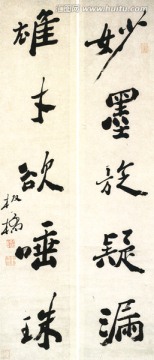 妙墨旋疑漏
雄才欲唾珠
板桥